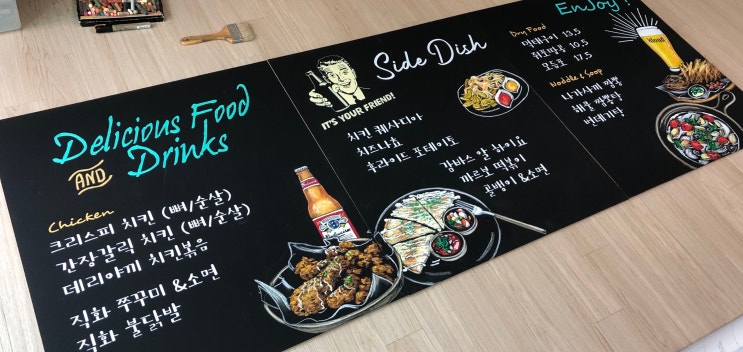 Delicious Food
AND
Drinks
Chicken
크리스피 치킨 (뼈/순살)
간장갈릭 치킨 (뼈/순살)
데리야끼 치킨볶음
직화 쭈꾸미 &소면
직화 불닭발
IT'S YOUR FRIEND!
Side Dish
치킨 퀘사디아
치즈나쵸
후라이드 포테이토
감바스 알 하이요
까르보 떡볶이
골뱅이 &소면
Budweiser
EnJoy!
Dry Food
먹태구이 13.5
쥐포땅콩 10.5
모듬포 17.5
Noddle & Soup
나가사끼 짬뽕
해물 짬뽕탕
번데기탕